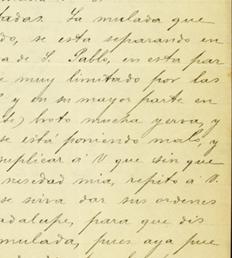 tadas. La mulada que
do, se esta separando en
a de S. Pablo, en esta par
e muy limitado por las
y en su mayor parte en
broto mucha yerva, y
se está poniendo malo, y
suplicar á V que sin que
nesedad mia, repito á V.
se sirva dar sus ordenes
adalupe, para que dis
mulada, pues aya pue